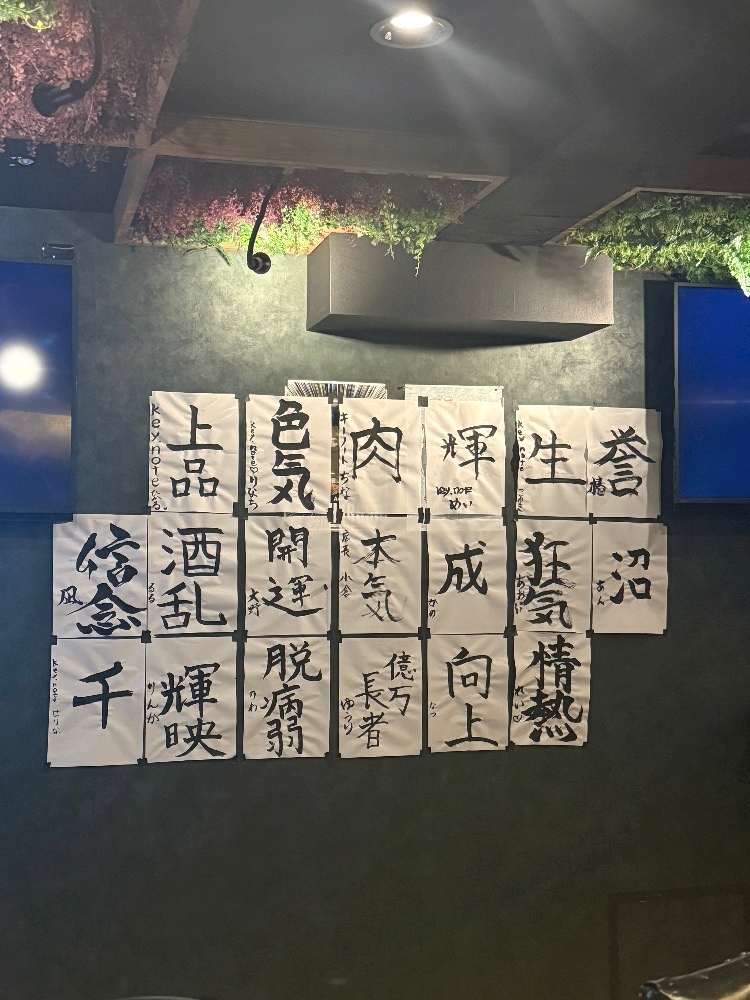 上品
key.note
色気
key.note りひち
肉
キーノート ちな
輝
key.note めい
生
key.note
誉
信念
凪
酒乱
るる
開運
大野
本気
店長 小倉
成
かの
狂気
あおい
沼
あん
千
key.note せりな
輝映
りんか
脱病弱
のわ
億万
長者
ゆうり
向上
なつ
情熱
れい